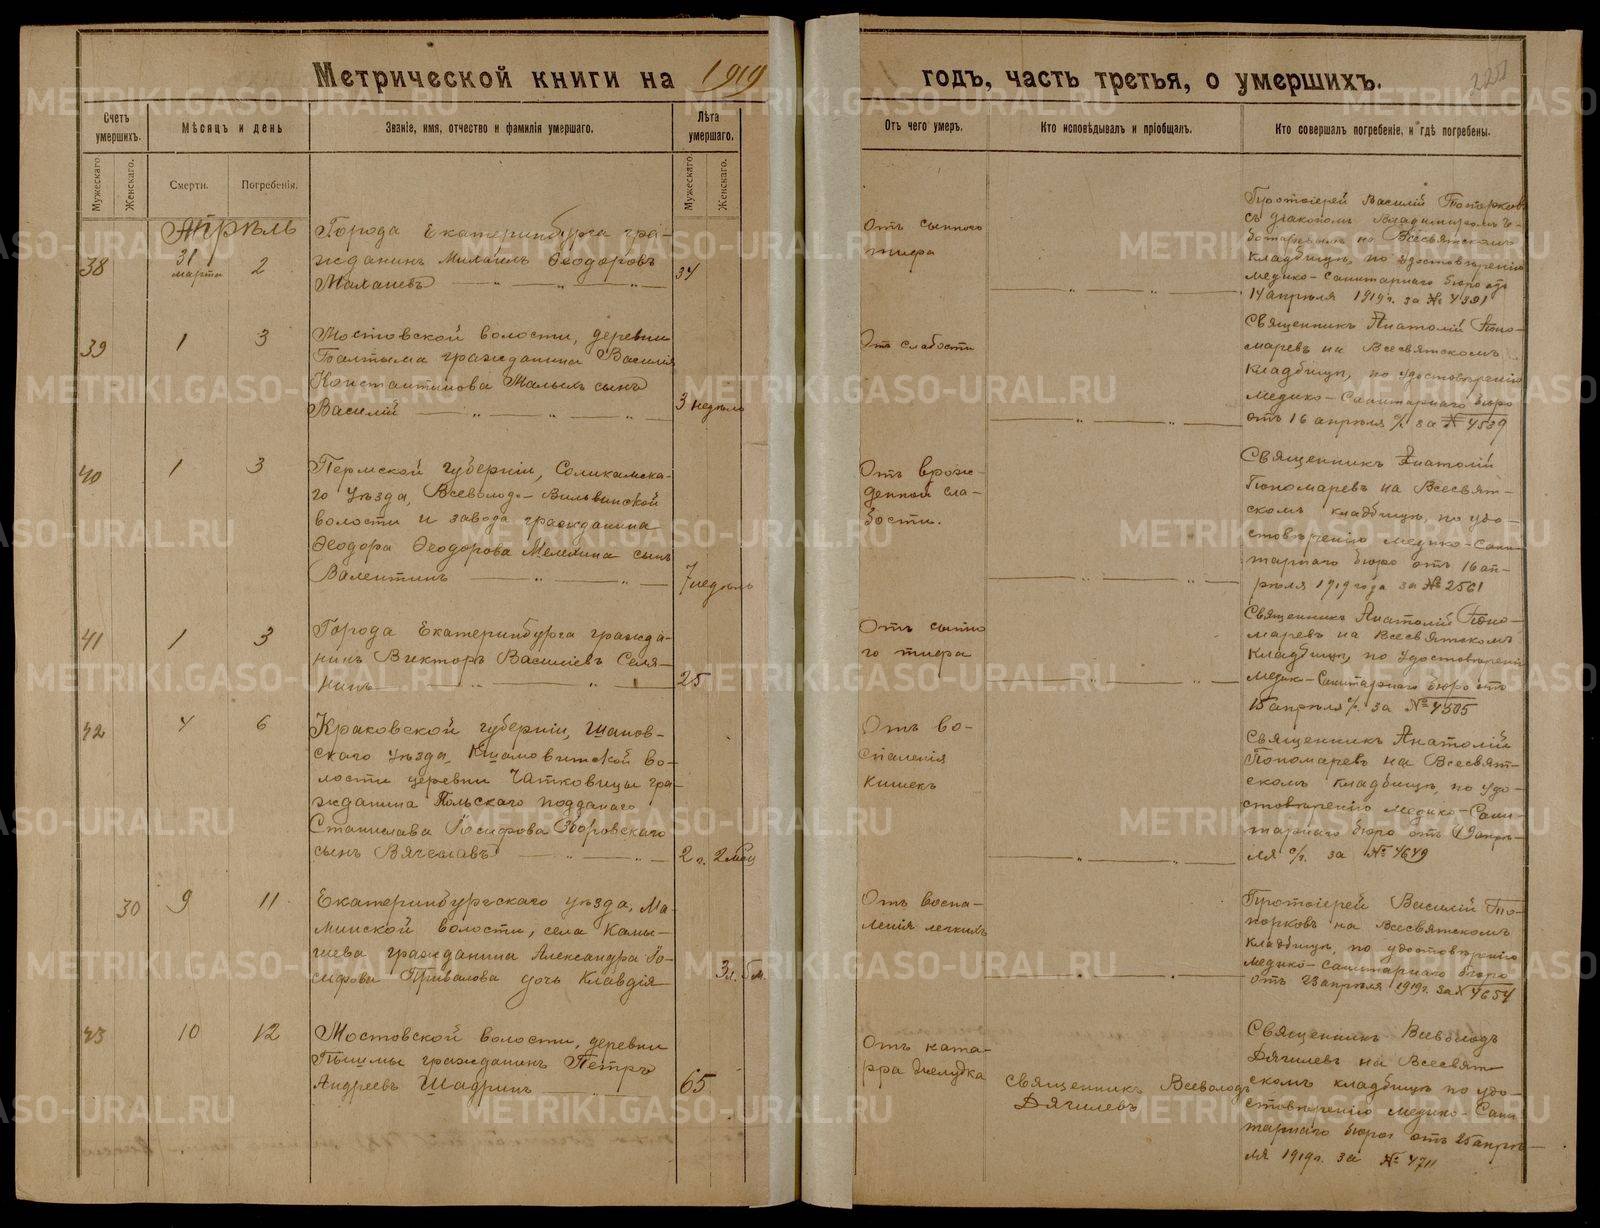 Метрической книги на 1919 годъ, часть третья, о умершихъ.
Счетъ умершихъ.
Мѣсяцъ и день
Званіе, имя, отчество и фамилія умершаго.
Лѣта умершаго.
Отъ чего умеръ.
Кто исповѣдывалъ и пріобщалъ.
Кто совершалъ погребеніе, и гдѣ погребены.
Мужескаго.
Женскаго.
Смерти.
Погребенія.
Мужескаго.
Женскаго.
Апрѣль
38
31 марта
2
Города Екатеринбурга гра-
жданинъ Михаилъ Ѳеодоровъ
34
Отъ сыпного
тифа
Протоіерей Василій
съ діакономъ
на Всесвятскомъ
кладбищѣ, по удостовѣренію
Медико-Санитарнаго бюро отъ
14 апрѣля 1919 г. за № 4391
39
1
3
Мостовской волости, деревни
Балтыма гражданина Василія
Константинова Малыхъ сынъ
Василій
3 недѣли
Отъ слабости
Священникъ Анатолій Поно-
маревъ на Всесвятскомъ
кладбищѣ, по удостовѣренію
Медико-Санитарнаго бюро
отъ 16 апрѣля с/г. за № 4539
40
1
3
Пермской губерніи, Соликамска-
го уѣзда, Всеволодо-Вильвинской
волости и завода гражданина
Ѳеодора Ѳеодорова Мелехина сынъ
Валентинъ
7 недѣль
Отъ врож-
денной сла-
бости.
Священникъ Анатолій
Пономаревъ на Всесвят-
скомъ кладбищѣ, по удо-
стовѣренію Медико-Сани-
тарнаго бюро отъ 16 ап-
рѣля 1919 года за № 2561
41
1
3
Города Екатеринбурга гражда-
нинъ Викторъ Василіевъ Селя-
нинъ
25
Отъ сыпно
го тифа
Священникъ Анатолій Поно-
маревъ на Всесвятскомъ
кладбищѣ, по удостовѣренію
Медико-Санитарнаго бюро отъ
15 апрѣля с/г. за № 4505
42
4
6
Краковской губерніи,
скаго уѣзда, во-
лости деревни гра-
жданина Польскаго подданаго
Станислава Іосифова Зборовскаго
сынъ Вячеславъ
2 г. 2 мѣс
Отъ во-
спаленія
кишекъ
Священникъ Анатолій
Пономаревъ на Всесвят-
скомъ кладбищѣ, по удо-
стовѣренію Медико-Сани-
тарнаго бюро отъ 19 апрѣ-
ля с/г. за № 4649
30
9
11
Екатеринбургскаго уѣзда, Ма-
минской волости, села Камы-
шева гражданина Александра Іо-
сифова Привалова дочь Клавдія
3 л. 6 м.
Отъ воспа-
ленія легкихъ
Протоіерей Василій То-
порковъ на Всесвятскомъ
кладбищѣ, по удостовѣренію
Медико-Санитарнаго бюро
отъ 23 апрѣля 1919 г. за № 4654
43
10
12
Мостовской волости, деревни
Пышмы гражданинъ Петръ
Андреевъ Шадринъ
65
Отъ ката-
рра желудка
Священникъ Всеволодъ
Дягилевъ
Священникъ Всеволодъ
Дягилевъ на Всесвят-
скомъ кладбищѣ по удо-
стовѣренію Медико-Сани-
тарнаго бюро отъ 25 апрѣ-
ля 1919 г. за № 4711
METRIKI.GASO-URAL.RU